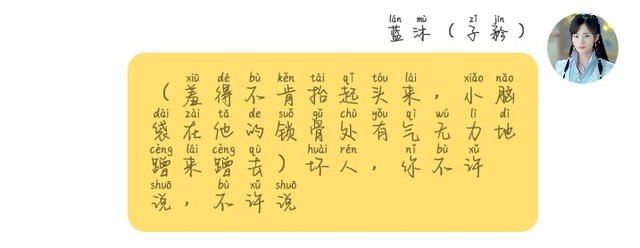 lán mù zǐ jīn
蓝沐（子矜）
xiū dé bù kěn tái qǐ tóu lái xiǎo nǎo
（羞得不肯抬起头来，小脑
dài zài tā de suǒ gǔ chù yǒu qì wú lì dì
袋在他的锁骨处有气无力地
cèng lái cèng qù huài rén nǐ bù xǔ
蹭来蹭去）坏人，你不许
shuō bù xǔ shuō
说，不许说